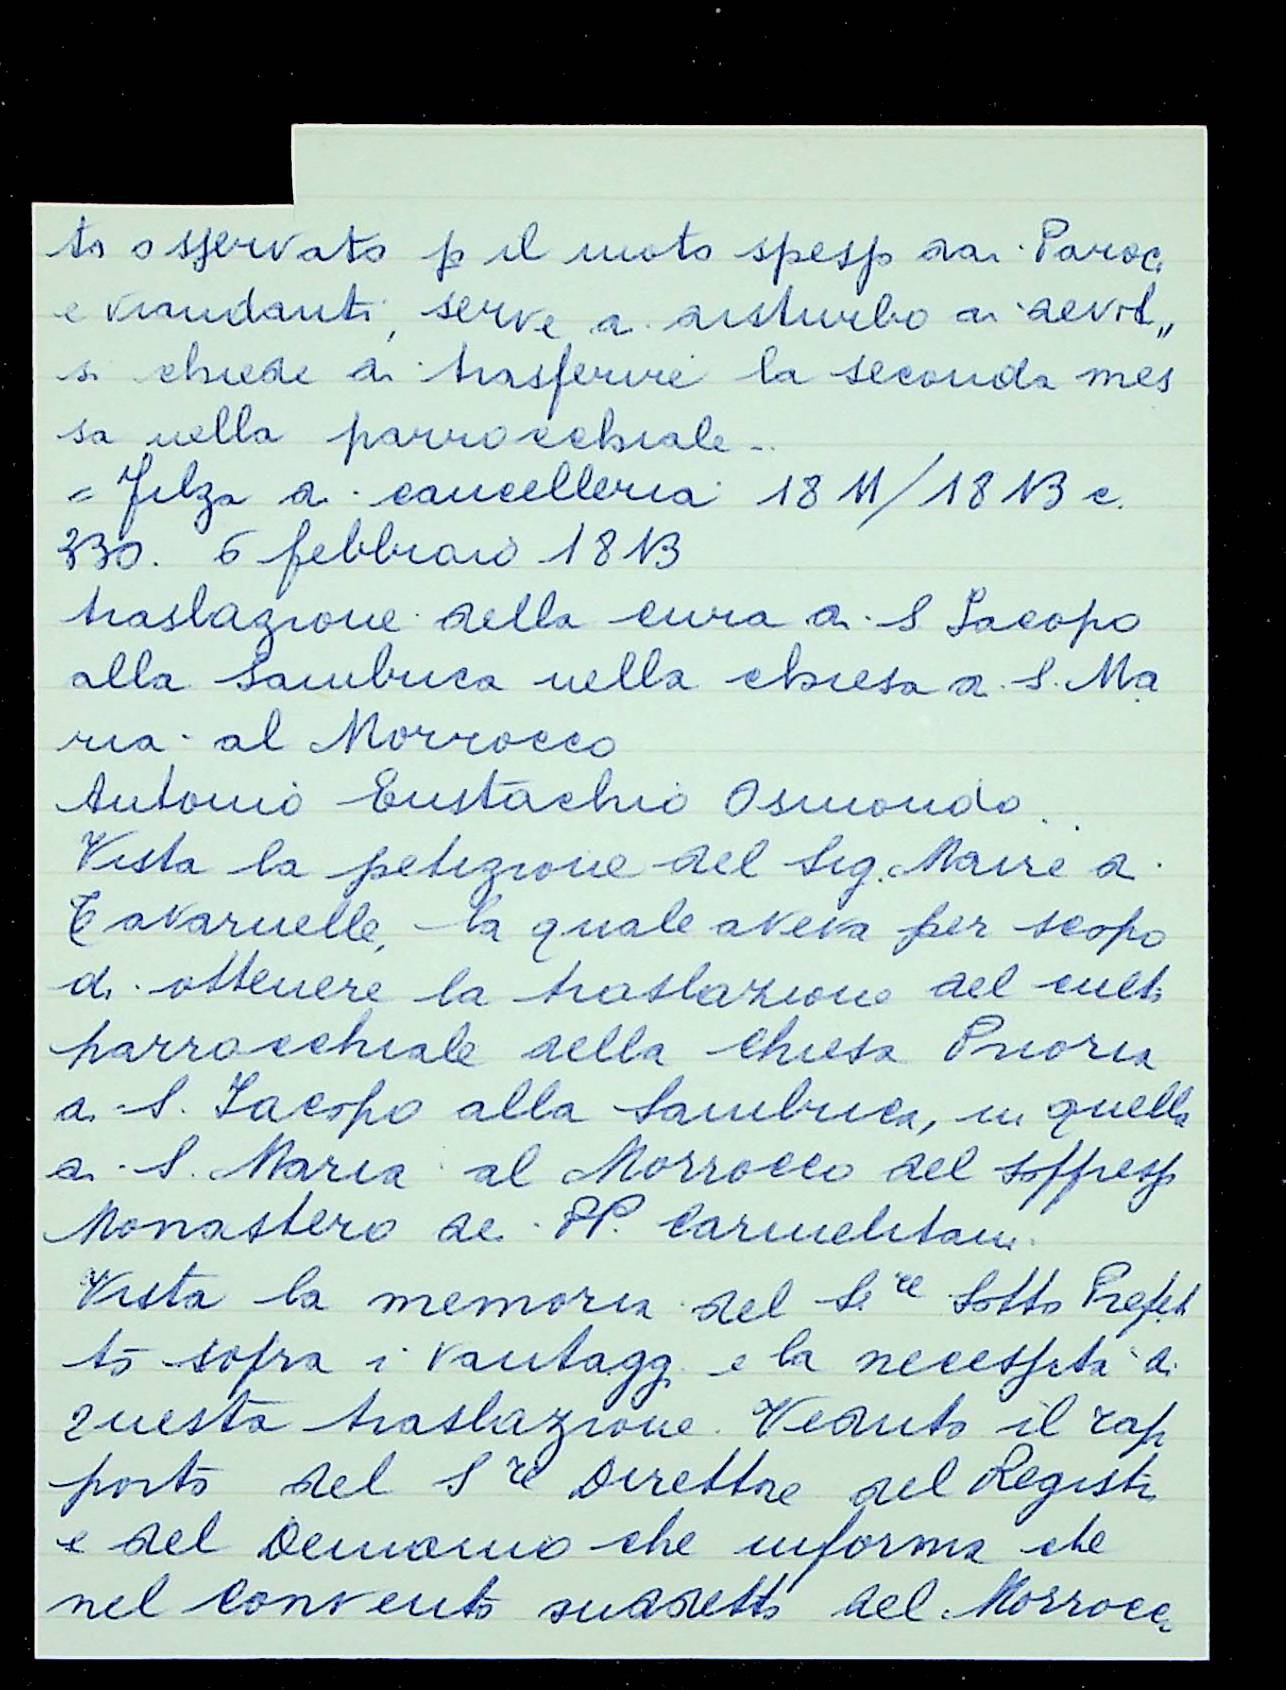 to osservato p il moto spesso dai Paroci
e viandanti, serve a disturbo ai devoti„
si chiede di trasferire la seconda mes
sa nella parrocchiale -
= Filza di cancelleria 1811/1813 c.
330. 6 febbraio 1813
traslazione della cura di S Jacopo
alla Sambuca nella chiesa di S. Ma
ria al Morrocco
Antonio Eustachio Osmondo
Vista la petizione del Sig. Maire di
Tavarnelle, la quale aveva per scopo
di ottenere la traslazione del culto
parrocchiale della Chiesa Prioria
di S. Jacopo alla Sambuca, in quella
di S. Maria al Morrocco del soppresso
Monastero de PP. Carmelitani
Vista la memoria del Sire Sotto Prefet
to sopra i vantaggi e la necessità di
questa traslazione. Veduto il rap
porto del Sre Direttore del Registro
e del Demanio che informa che
nel Convento suddetto del Morrocco